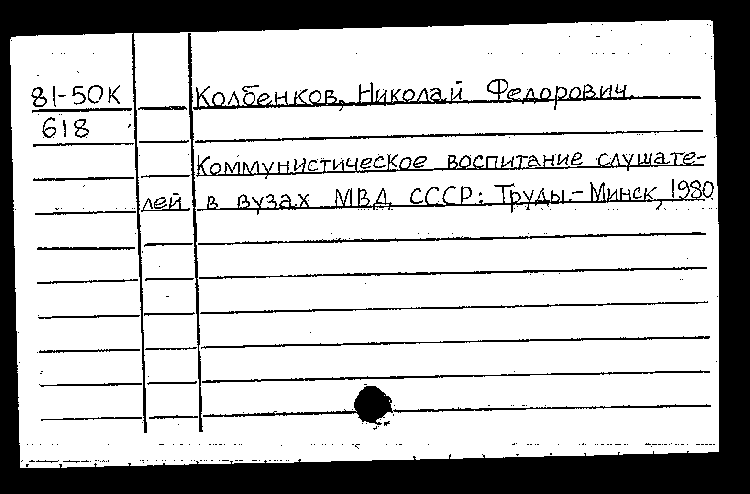 81-50К Колбенков, Николай Федорович.
618
Коммунистическое воспитание слушате-
лей в вузах МВД СССР: Труды.-Минск, 1980